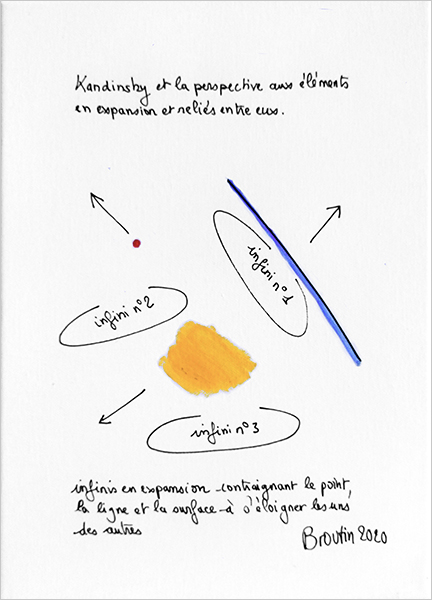 Kandinsky et la perspective aux éléments
en expansion et reliés entre eux.
infini n°1
infini n°2
infini n°3
infinis en expansion contraignant le point,
la ligne et la surface à s'éloigner les uns
des autres
Broutin 2020